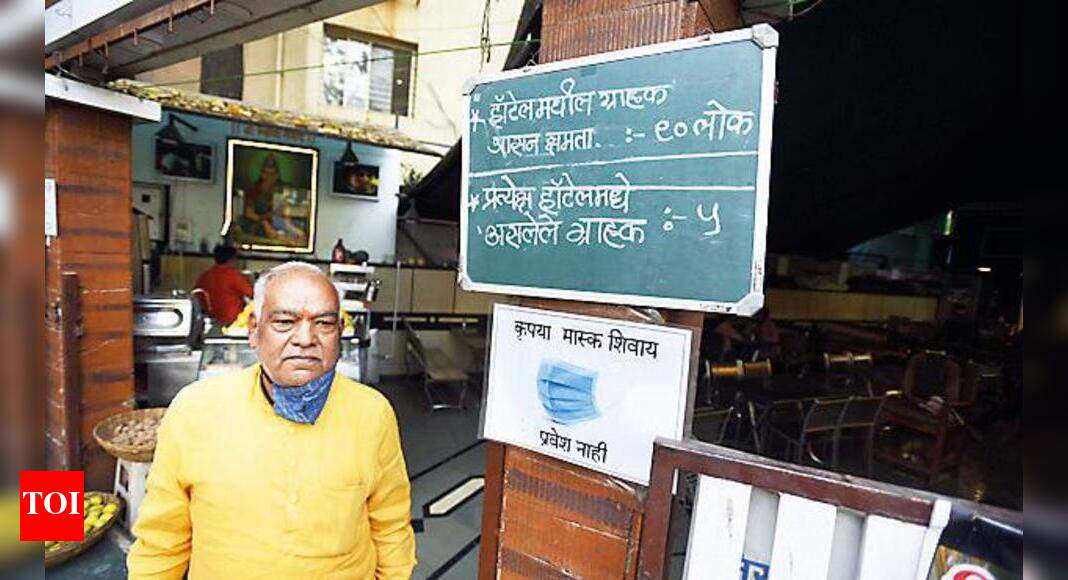 * हॉटेलमधील ग्राहक
आसन क्षमता. :- ९० लोक
* प्रत्येक्ष हॉटेलमध्ये
असलेले ग्राहक :- ५
कृपया मास्क शिवाय
प्रवेश नाही
TOI